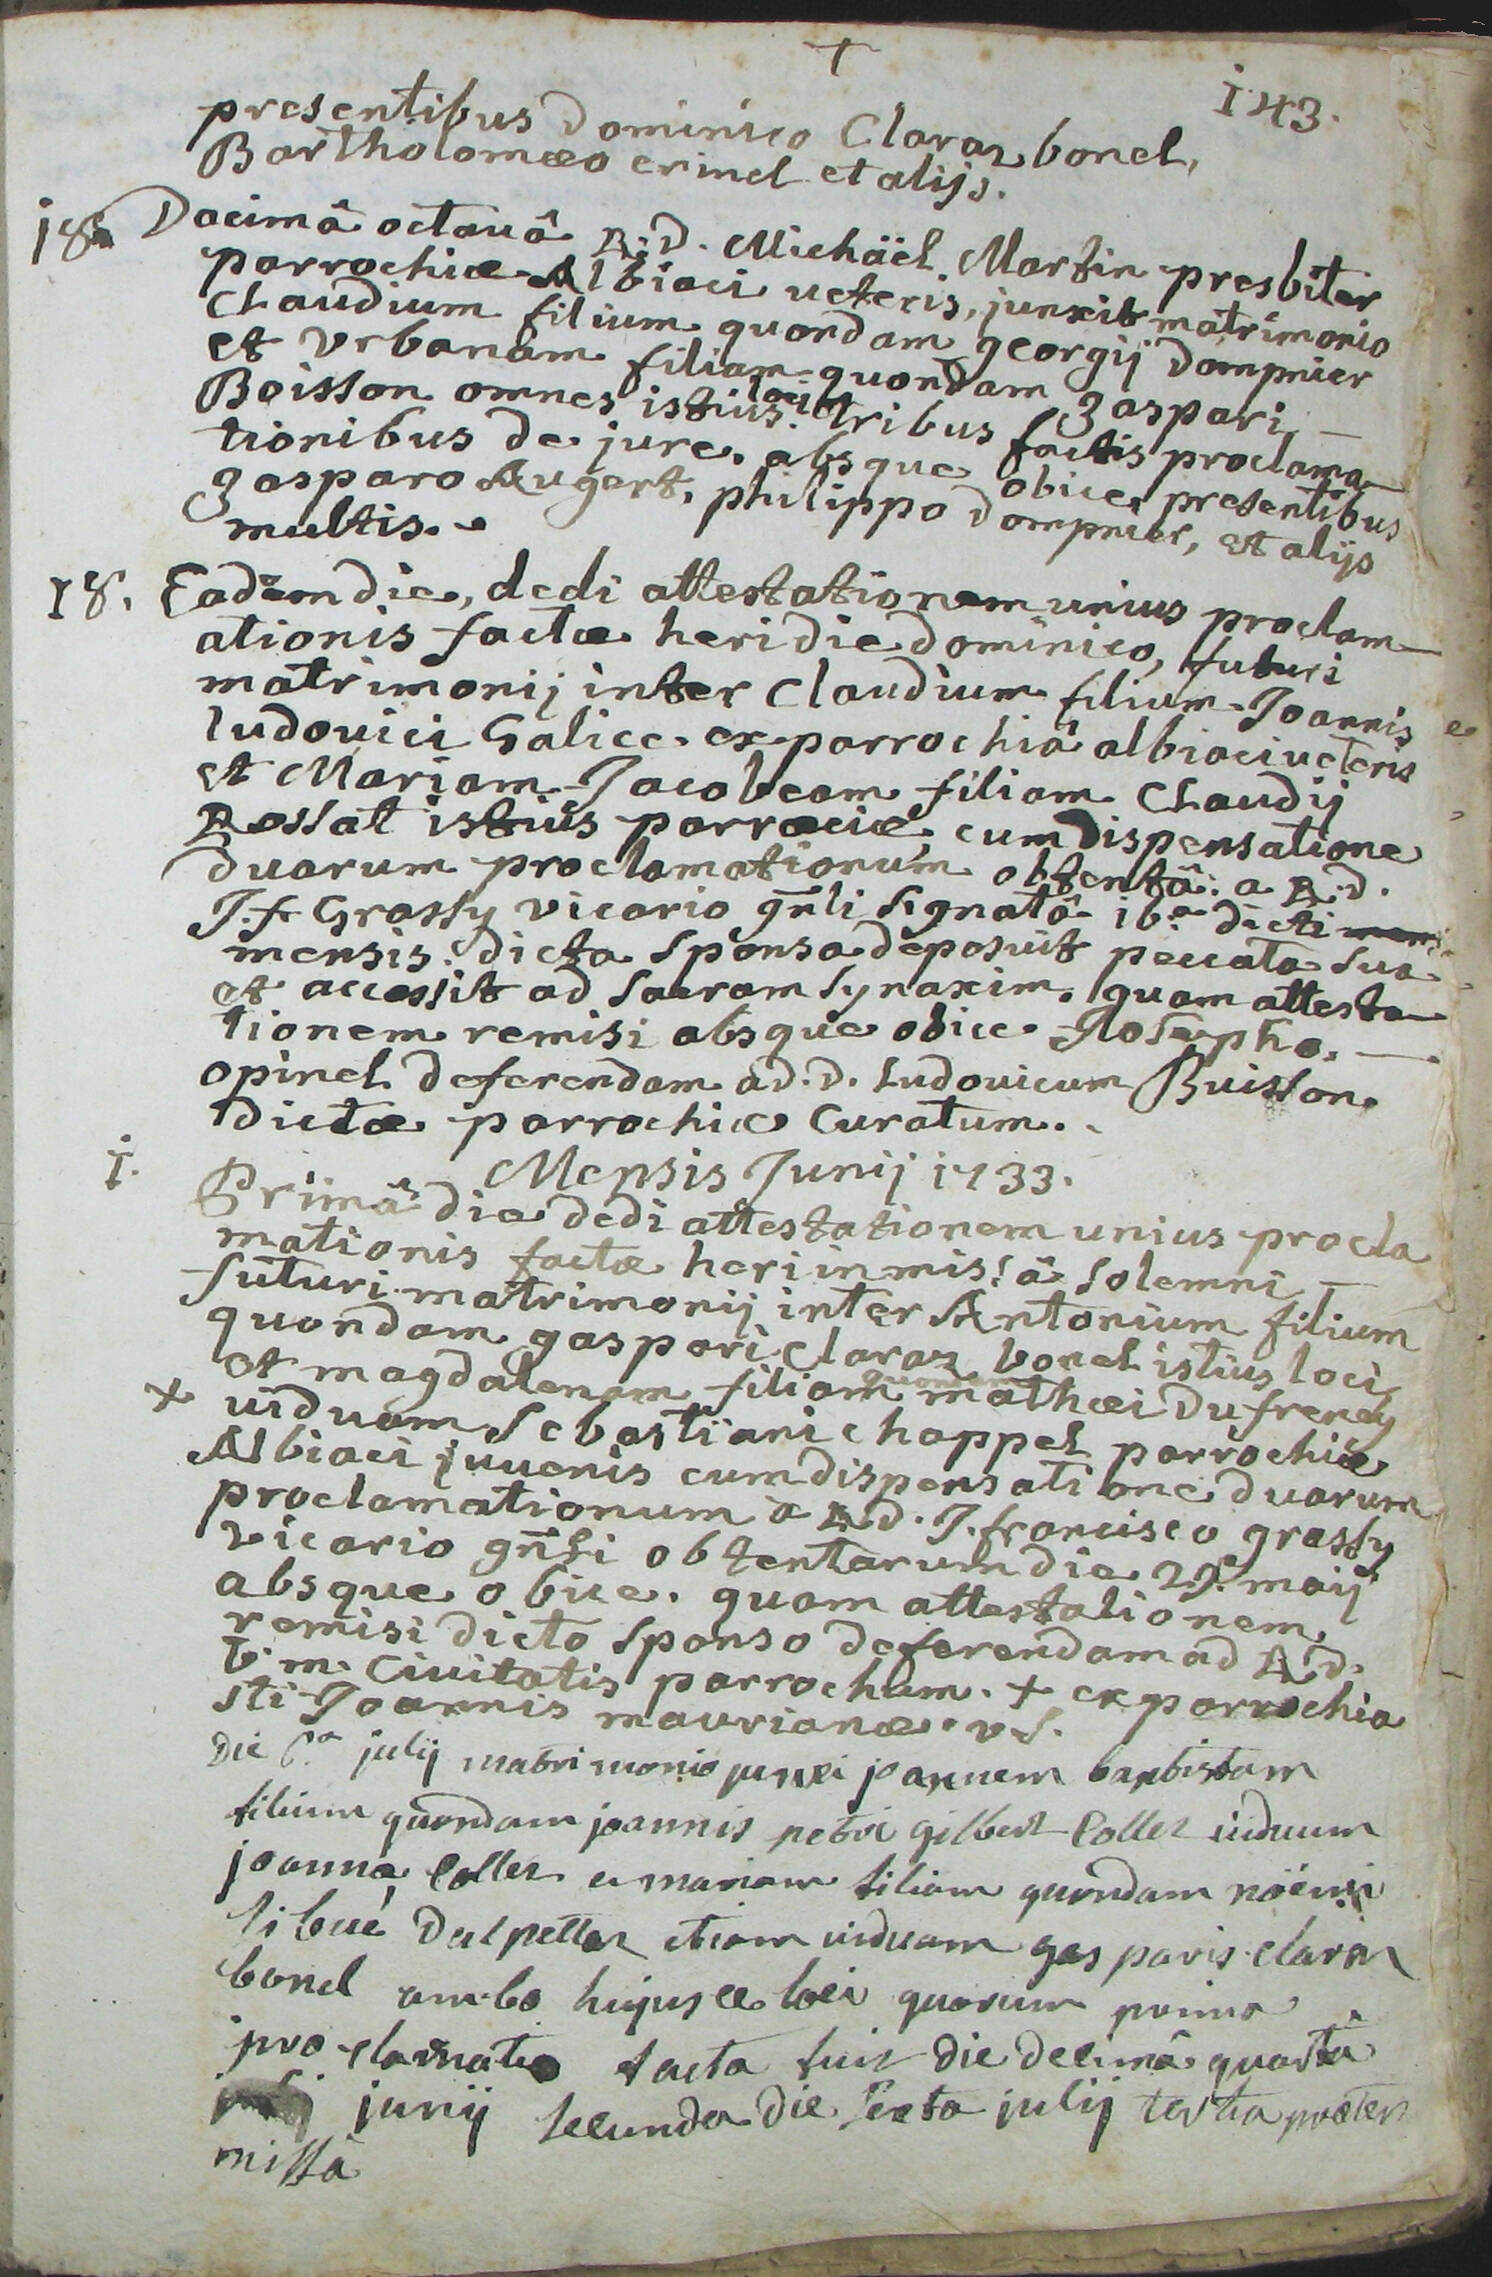 +
143.
presentibus Dominico Claraz bonel,
Bartholomæo crinel et alijs.
18a Decimâ octauâ R.D. Michäel Martin presbiter
parrochiæ Albiaci ueteris, junxit matrimonio
Claudium filium quondam georgij Dompnier
et Vrbanam filiam quondam gaspari
Boisson omnes istius loci, tribus factis proclama-
tionibus de jure, absque obice, presentibus
gasparo Augert, philippo dompnier, et alijs
multis.
18. Eadem die, dedi attestationem unius proclam-
ationis factæ heri die dominico, futuri
matrimonij inter Claudium filium Joannis
ludouici Galice ex parrochiâ albiaci ueteris
et Mariam Jacobeam filiam Claudij
Rossat istius parrociæ, cum dispensatione
duarum proclamationum obtentâ a R.D.
J.f. Grassy vicario gnli signatâ 16a dicti
mensis. dicta sponsa deposuit peccata sua
et accessit ad sacram synaxim. quam attesta-
tionem remisi absque obice Josepho
opinel deferendam ad D. Ludouicum Buisson
dictæ parrochiæ Curatum.
Mensis Junij 1733.
1. Primâ die dedi attestationem unius procla
mationis factæ heri in missâ solemni
futuri matrimonij inter Antonium filium
quondam gaspari Claraz bonel istius loci
et magdalenam filiam quondam mathæi Dufrency
+ uiduam Sebastiani chappel parrochiæ
Albiaci juuenis cum dispensatione duarum
proclamationum a R.D. J. francisco grassy
vicario gnli obtentarum die 29a maij
absque obice. quam attestationem
remisi dicto sponso deferendam ad R.D.
b. m. Ciuitatis parrochum. + ex parrochia
sti Joannis maurianæ. vs.
Die 6.a julij matrimonio junxi joannem baptistam
filium quondam joannis petri gilbert Collet uiduum
joannæ Collet et mariam filiam quondam
Dalpettaz etiam uiduam gasparis claraz
bonel ambo hujusce loci quorum prima
proclamatio facta fuit die decimâ quartâ
junij secunda die sexta julij tertia præter
missâ